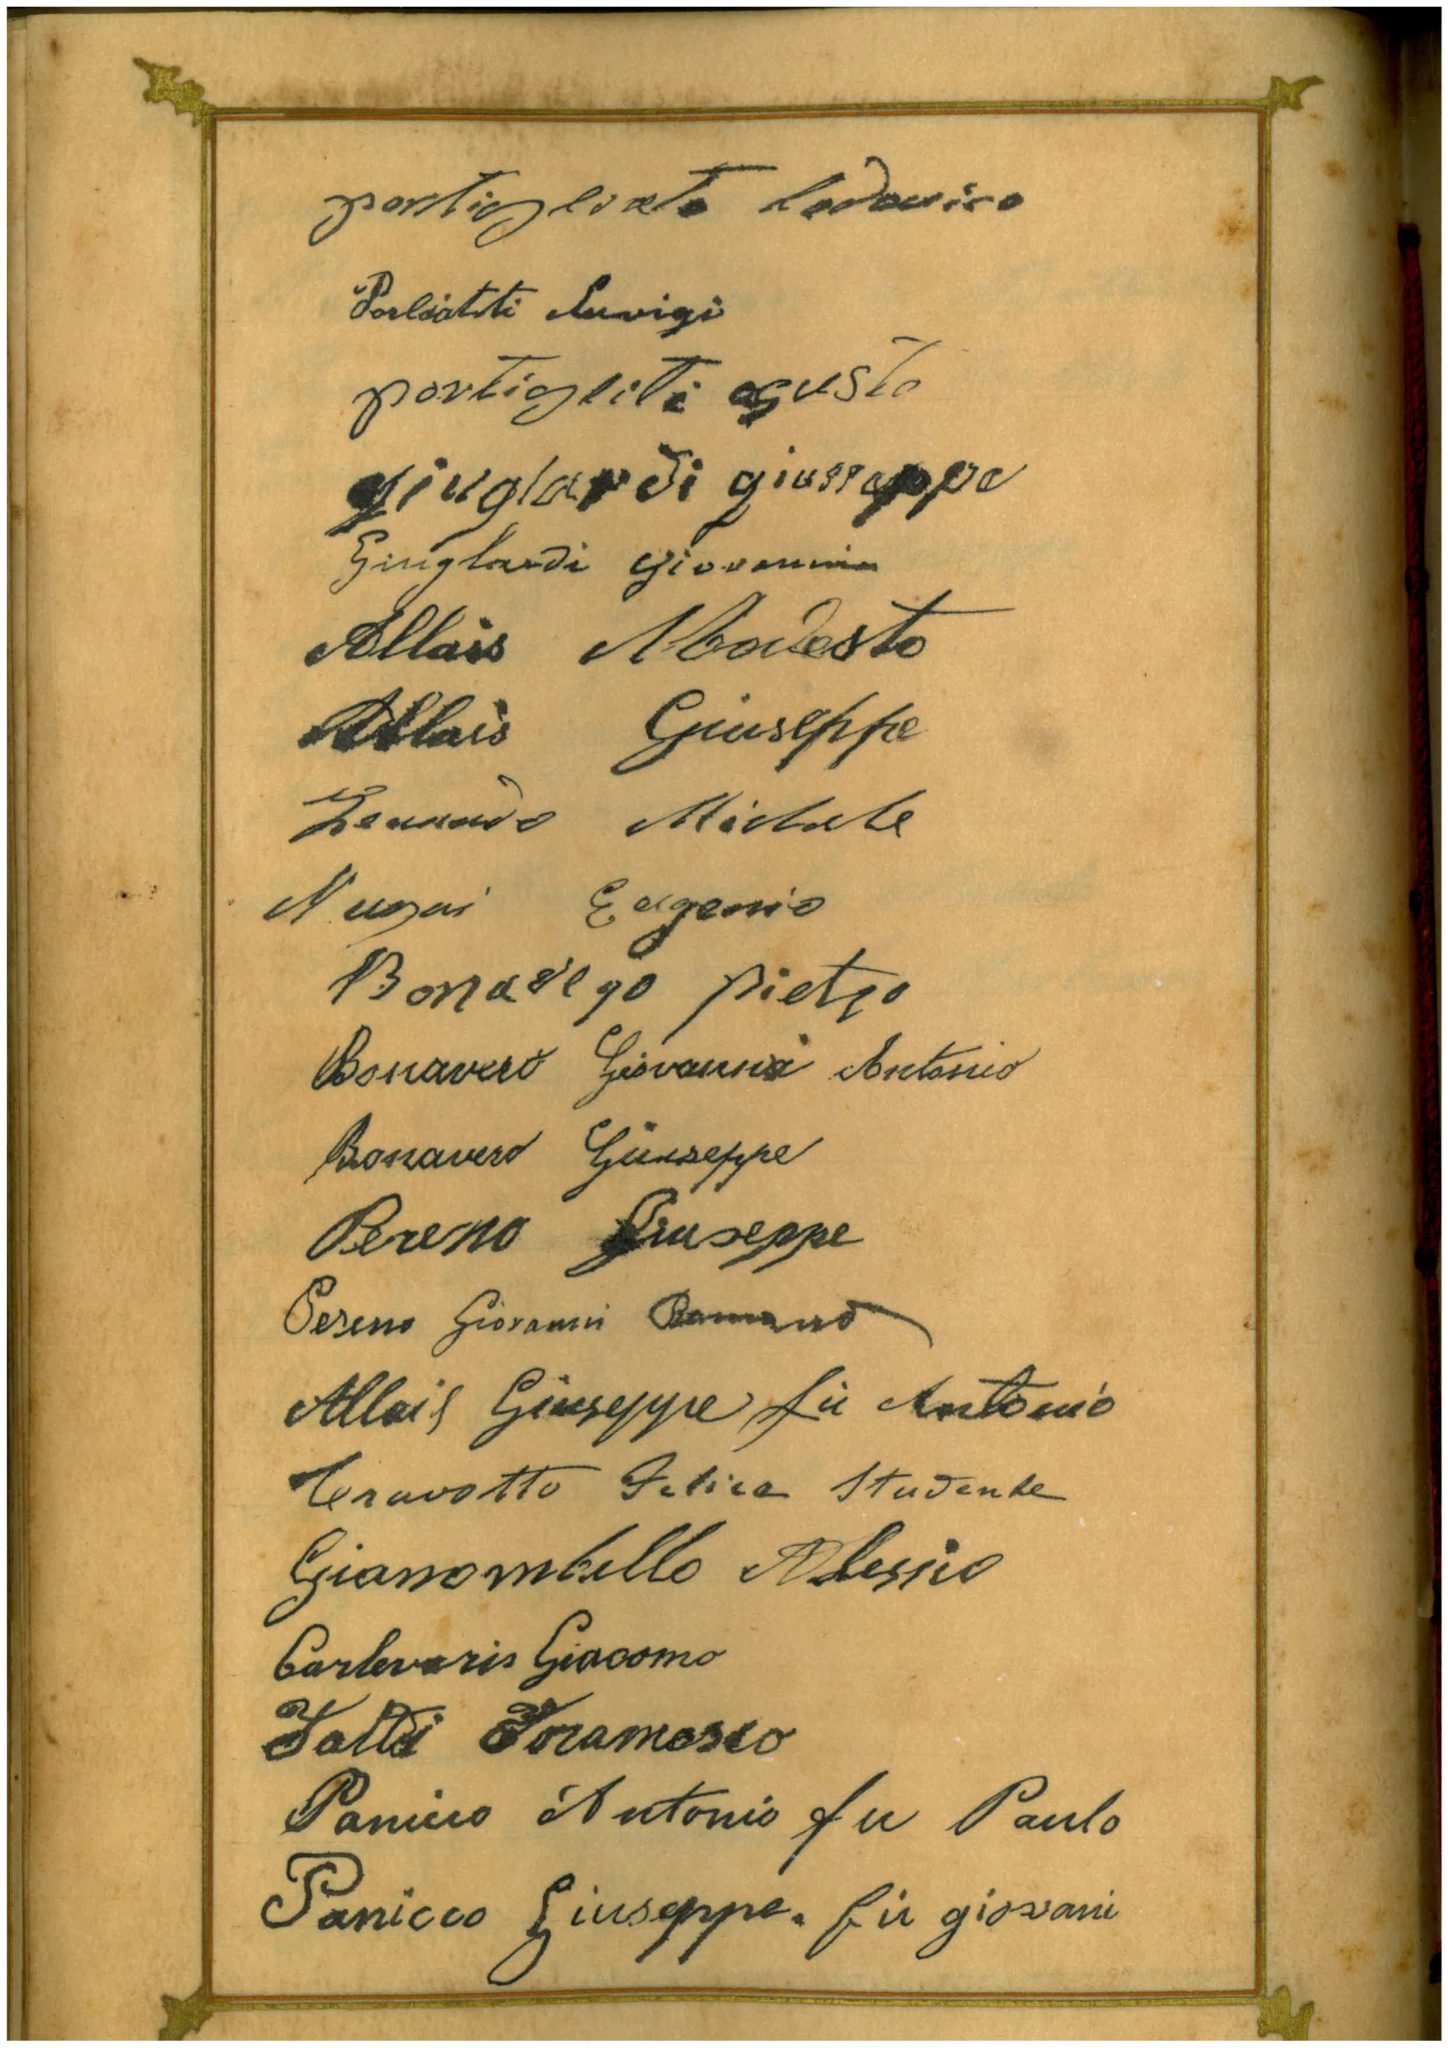 portigliati lodovico
Porliatti Luvigi
portigliti agusto
giuglardi giuseppe
Giuglardi Giovanni
Allais Modesto
Allais Giuseppe
Michele
Eugenio
Bonavero pietro
Bonavero Giovanni Antonio
Bonavero Giuseppe
Pereno Giuseppe
Pereno Giovanni Romano
Allais Giuseppe fù Antonio
Cravotto Felice Studente
Gianombello Alessio
Carlevaris Giacomo
Panicco Antonio fu Paulo
Panicco Giuseppe. fù giovani